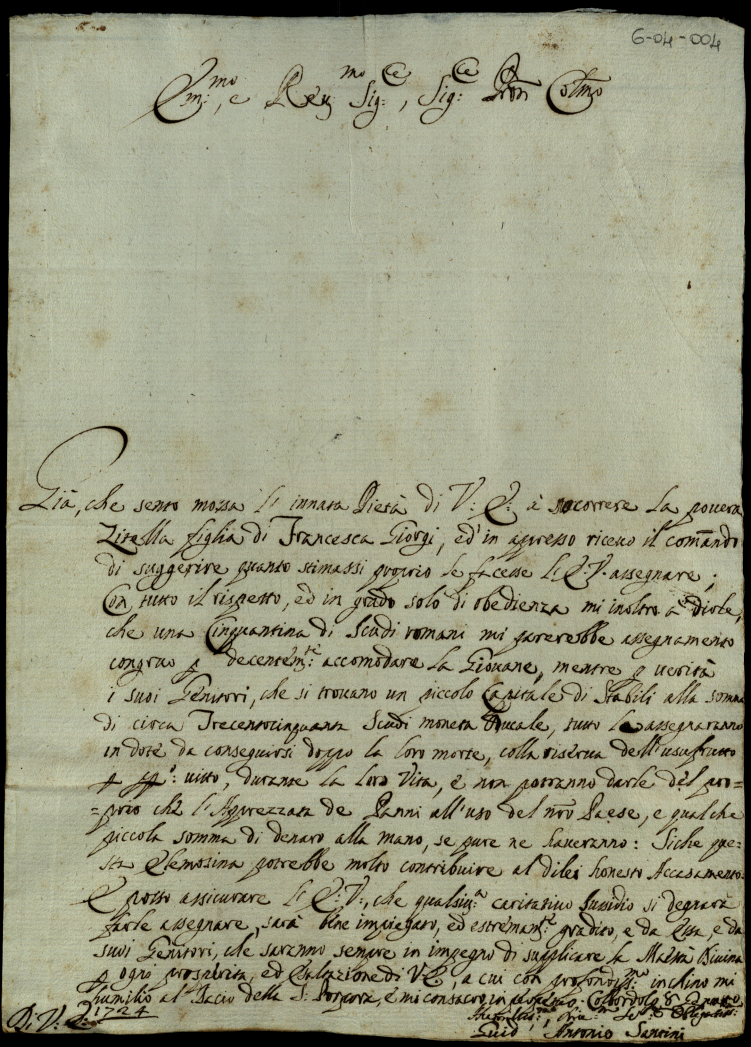 6-04-004
Em:mo, e Reu mo Sig:re, Sig:re Pron Colmo
Già, che sento mossa l'innata Pietà di V: E: à socorrere la pouera
Zitella figlia di Francesca Giorgi, ed in appresso riceuo il comãndo
di suggerire quanto stimassi proprio le facesse l'E.V. assegnare;
Con tutto il rispetto, ed in grado solo di obedienza mi inoltro a dirle,
che una Cinquantina di Scudi romani mi parerebbe assegnamento
congruo p decentem:te accomodare la Giouane, mentre p uerità
i suoi Genitori, che si trouano un piccolo Capitale di Stabili alla somma
di circa Trecentocinquanta Scudi moneta Ducale, tutto le assegnaranno
in dote da conseguirsi doppo la loro morte, colla riserua dell'usufrutto
uitto, durante la loro Vita, e non potranno darle del pro=
=prio che l'Apprezzata de Panni all'uso del nr̃o Paese, e qualche
piccola somma di denaro alla mano, se pure ne haueranno: Siche que=
sta Elemosina potrebbe molto contribuire al dilei honesto Accasamento:
E posso assicurare l'E: V:, che qualsiu:a caritatiuo sussidio si degnarà
farle assegnare, sarà bene impiegato, ed estremam:te gradito, e da Essa, e da
suoi Genitori, che saranno sempre in impegno di supplicare la Maestà Diuina
p ogni prosperità, ed Esaltazione di V E:, a cui con profondiss:mo inchino mi
humilio al Bacio della S: Porpora, e mi consacro in
D: V: E: 1724
Guid' Antonio Santini